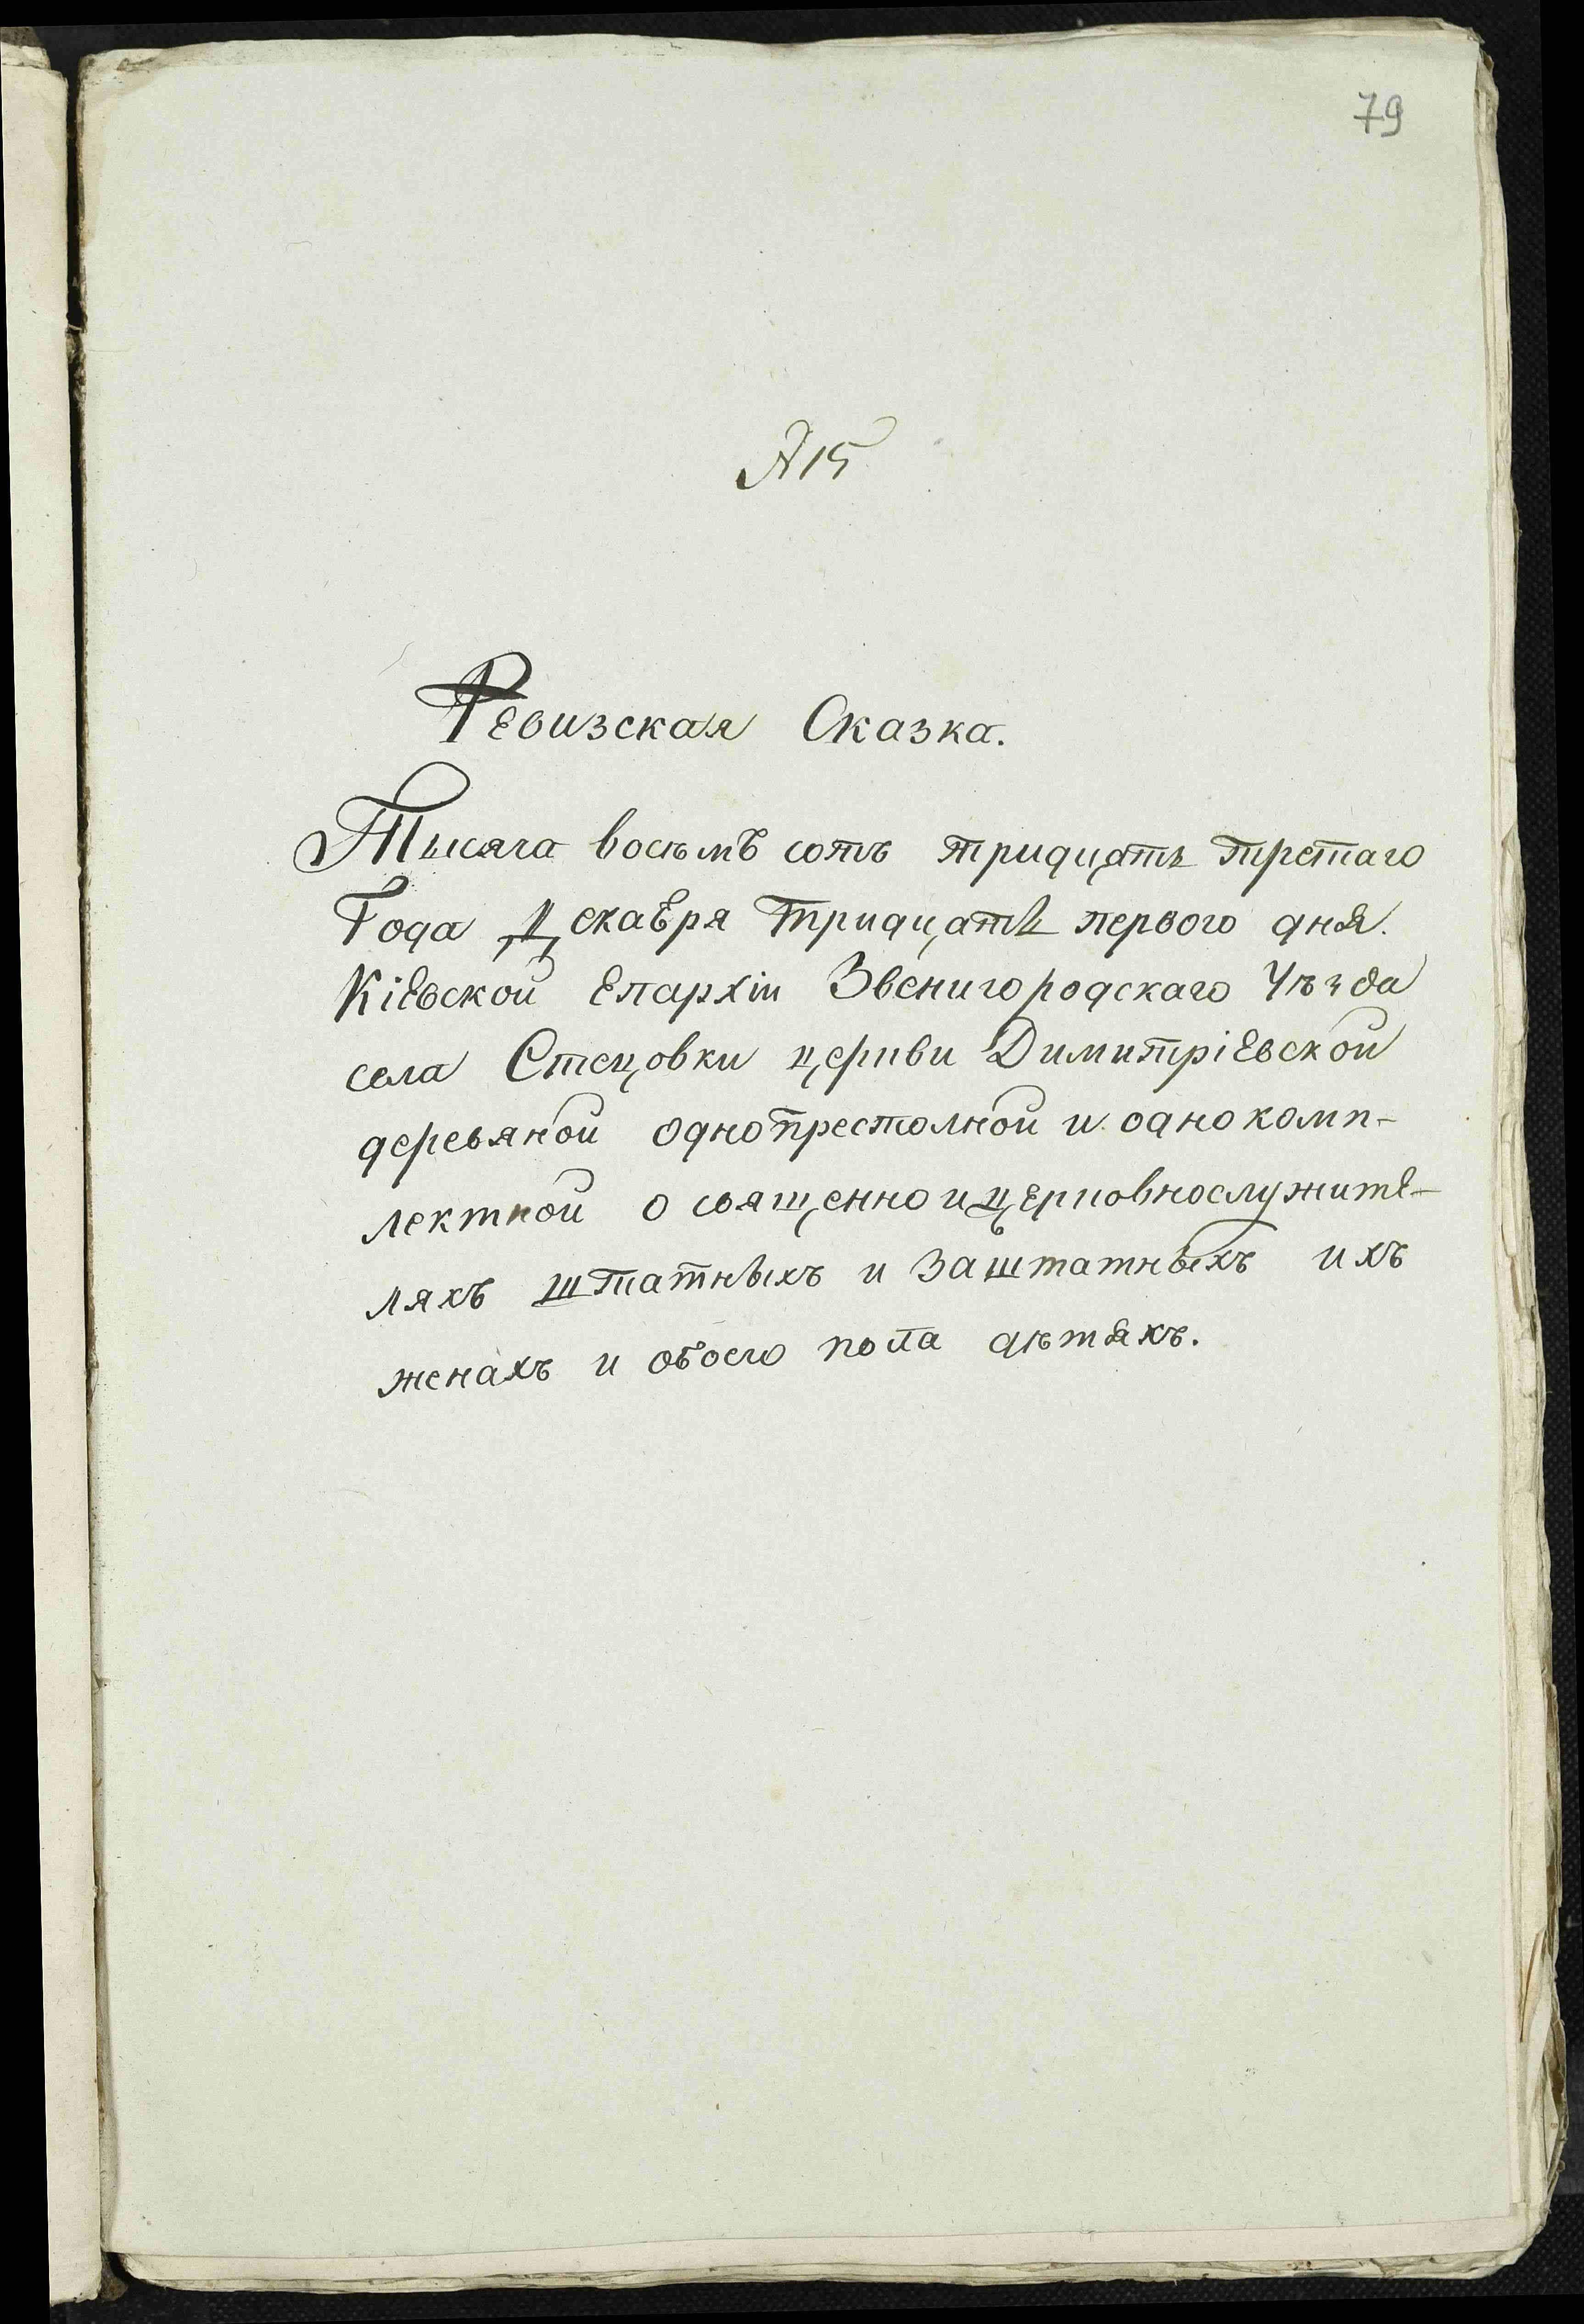 79
№ 15
Ревизская Сказка.
Тысяча восьмъ сотъ тридцять третаго
Года Декабря тридцать первого дня.
Кіевской Епархіи Звенигородскаго Уѣзда
села Стецовки церкви Димитріевской
деревяной однопрестолной и однокомп-
лектной о священно и церковнослужите-
ляхъ штатныхъ и заштатныхъ ихъ
женахъ и обоего пола дѣтяхъ.